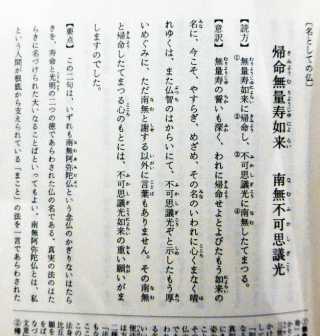 〔名としての仏〕
帰命無量寿如来　南無不可思議光
【読方】無量寿如来に帰命し、不可思議光に南無したてまつる。
【意訳】無量寿の誓いも深く、われに帰命せよとよびたもう如来の
名に、今こそ、やすらぎ、めざめ、その名のいわれに心くまなく晴
れゆくは、また仏智のはからいにて、不可思議光ぞと示したもう厚
いめぐみに、ただ南無と謝する以外に言葉もありません。その南無
と帰命したてまつる心のもとには、不可思議光如来の重い願がいま
しますのでした。
【要点】この二句は、いずれも南無阿弥陀仏という念仏のかぎりないはたら
きを、寿命と光明の二つの徳であらわされた仏の名である。真実の法のはた
らきに名づけられた大いなることばといってもよい。南無阿弥陀仏とは、私
という人間が根底から支えられている「まこと」の法を一言であらわされた